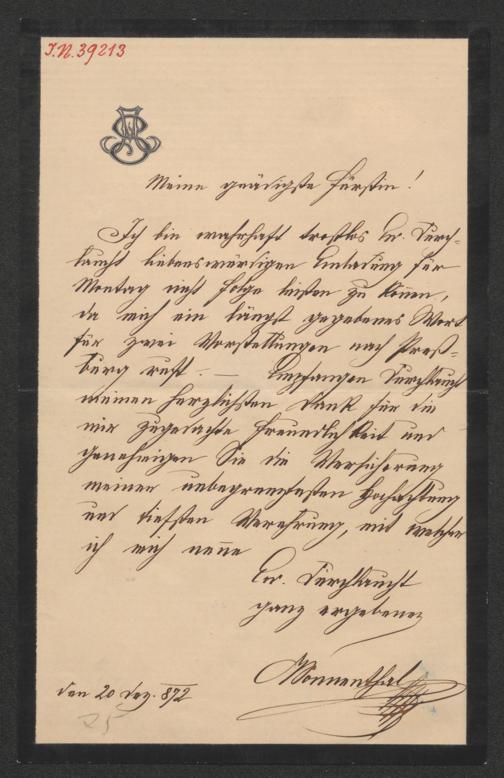 I.N. 39213
Meine gnädigste Fürstin!
Ich bin wahrhaft trostlos Ew. Durch-
laucht liebenswürdigen Einladung für
Montag nicht Folge leisten zu können,
da mich ein längst gegebenes Wort
für zwei Vorstellungen nach Preß-
burg ruft. — Empfangen Durchlaucht
meinen herzlichsten Dank für die
mir zugedachte Freundlichkeit und
genehmigen Sie die Versicherung
meiner unbegrenztesten Hochachtung
und tiefsten Verehrung, mit welcher
ich mich nenne
Ew. Durchlaucht
ganz ergebener
ASonnenthal
den 20 Dez. 872
25